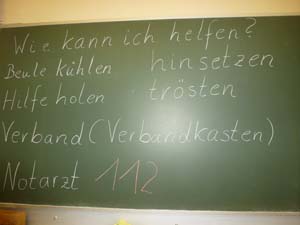 Wie kann ich helfen?
Beule kühlen hinsetzen
Hilfe holen trösten
Verband (Verbandkasten)
Notarzt 112